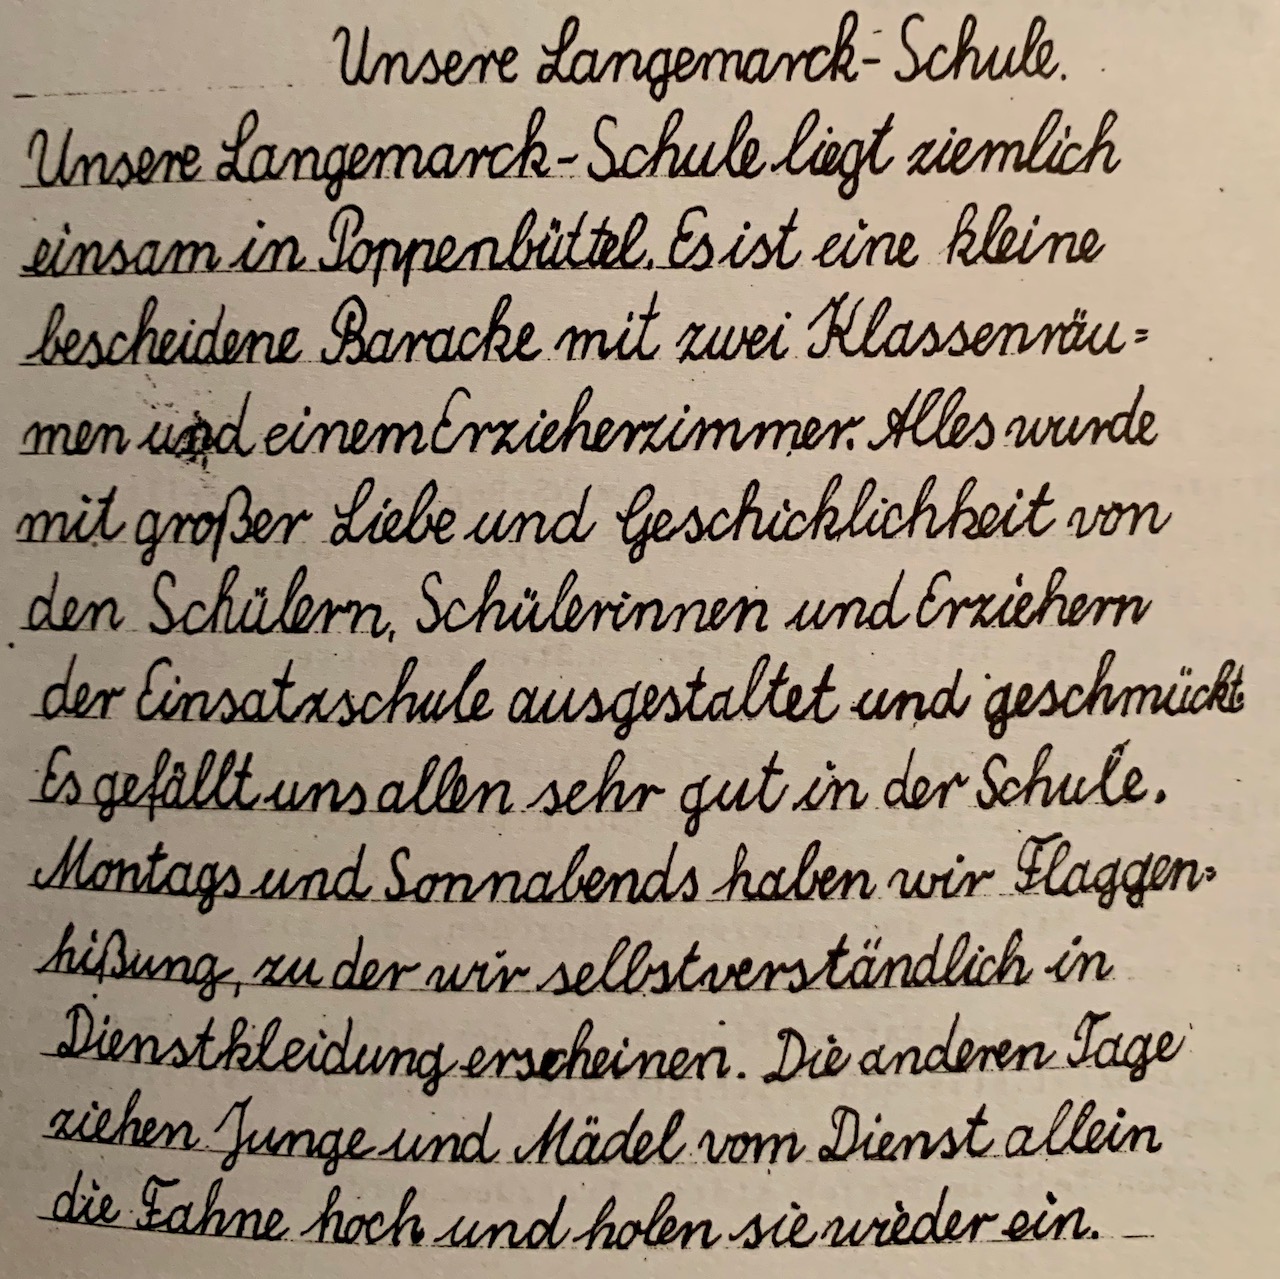 Unsere Langemarck-Schule.
Unsere Langemarck-Schule liegt ziemlich
einsam in Poppenbüttel. Es ist eine kleine
bescheidene Baracke mit zwei Klassenräu=
men und einem Erzieherzimmer. Alles wurde
mit großer Liebe und Geschicklichkeit von
den Schülern, Schülerinnen und Erziehern
der Einsatzschule ausgestaltet und geschmückt.
Es gefällt uns allen sehr gut in der Schule.
Montags und Sonnabends haben wir Flaggen=
hißung, zu der wir selbstverständlich in
Dienstkleidung erscheinen. Die anderen Tage
ziehen Junge und Mädel vom Dienst allein
die Fahne hoch und holen sie wieder ein.